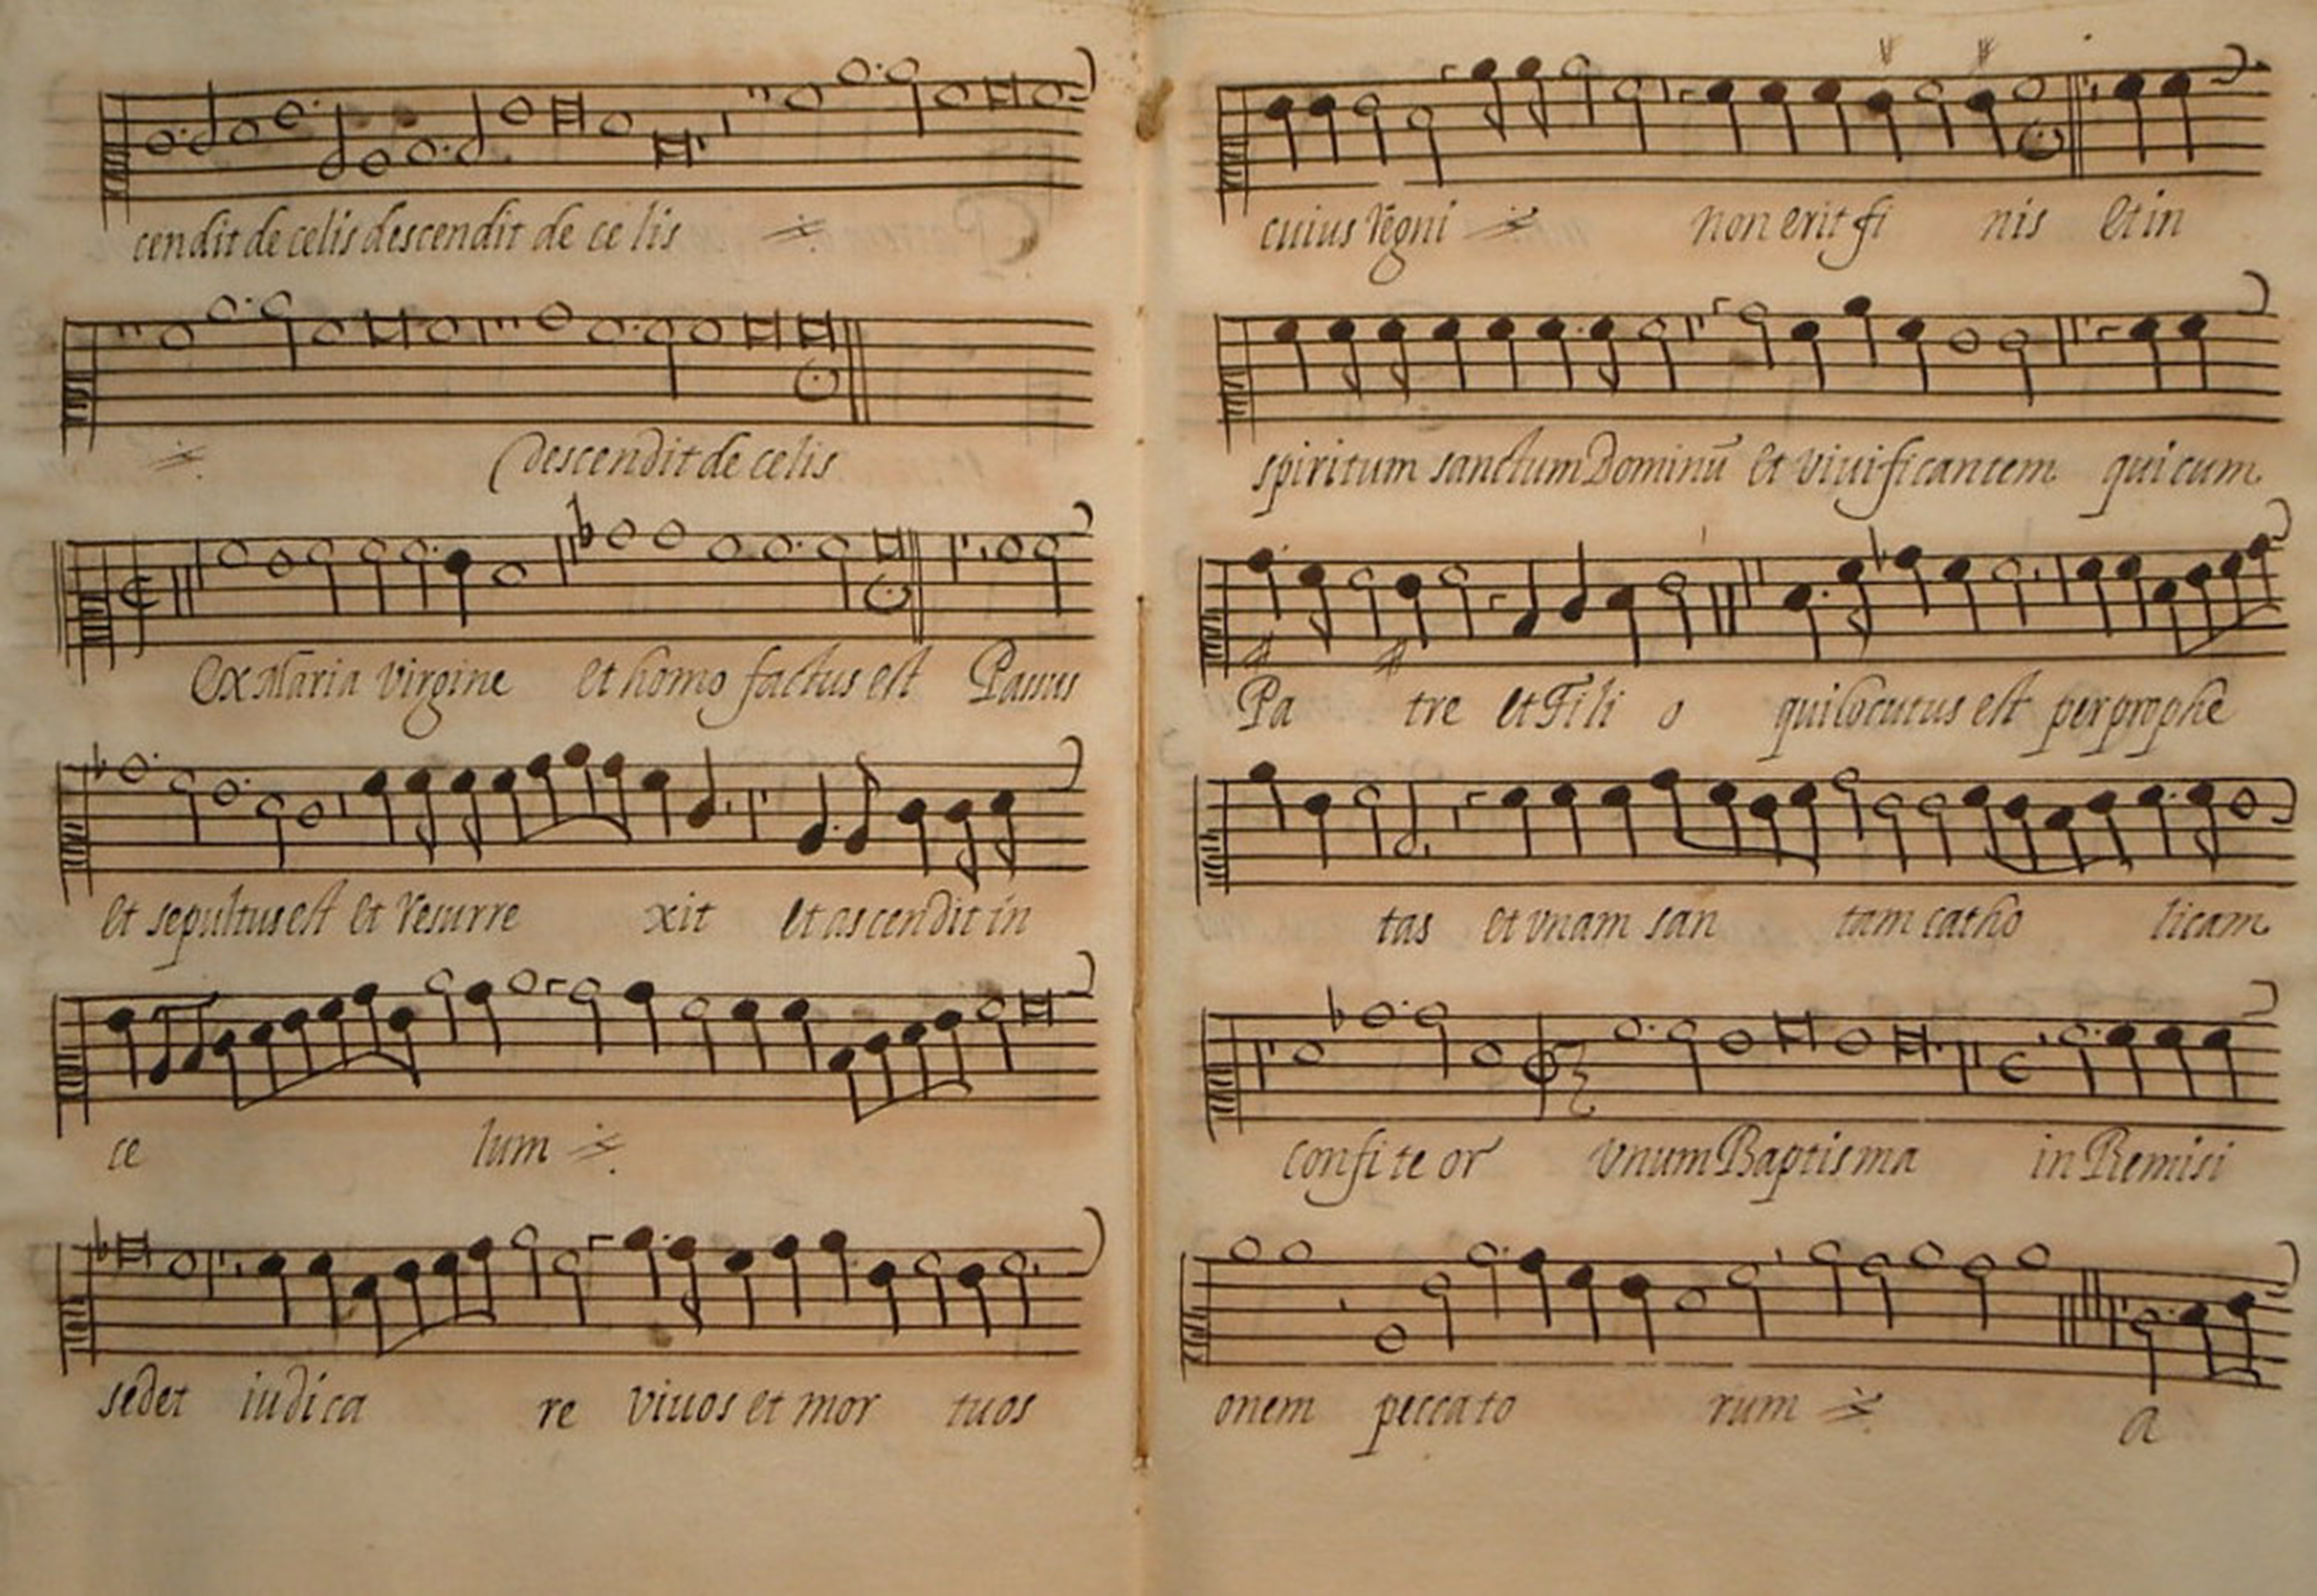 cendit de celis descendit de ce lis
Descendit de celis
Ex Maria virgine et homo factus est Passus
et sepultus est et resurre xit et ascendit in
ce lum
sedet iudica re viuos et mor tuos
cuius regni non erit fi nis et in
spiritum sanctum Dominū et viuificantem qui cum
Pa tre et Fili o qui locutus est per prophe
tas et vnam san tam catho licam
confite or vnum Baptisma in Remisi
onem peccato rum a